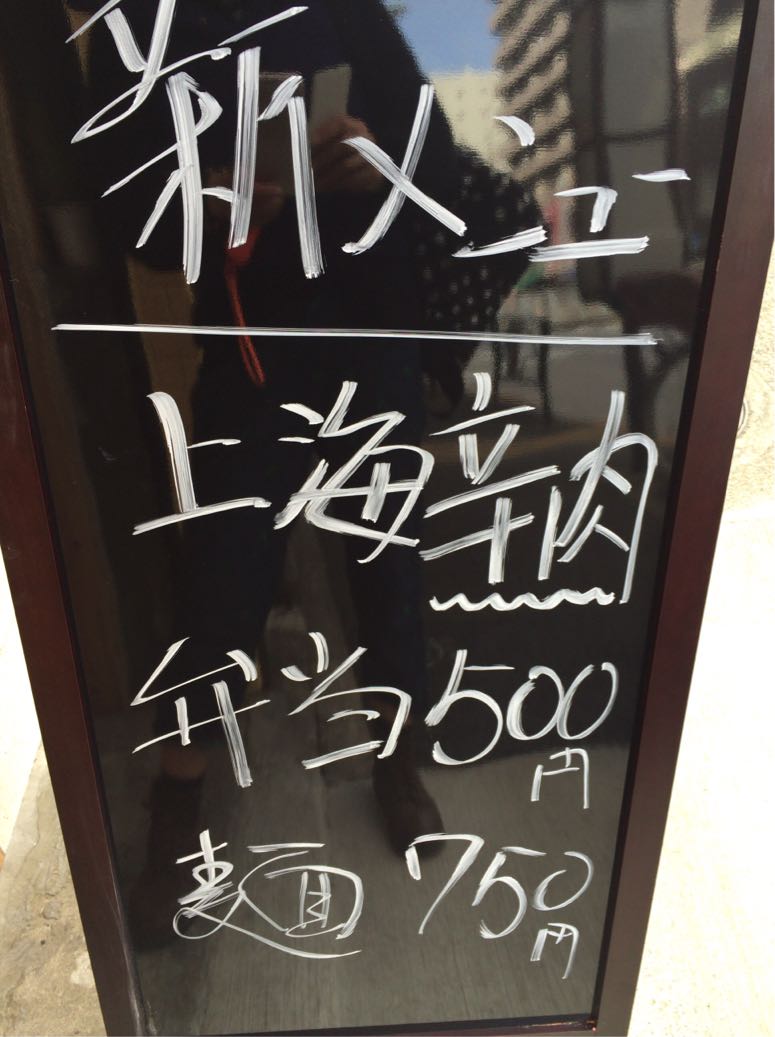 新メニュー
上海辛肉
弁当500円
麺750円